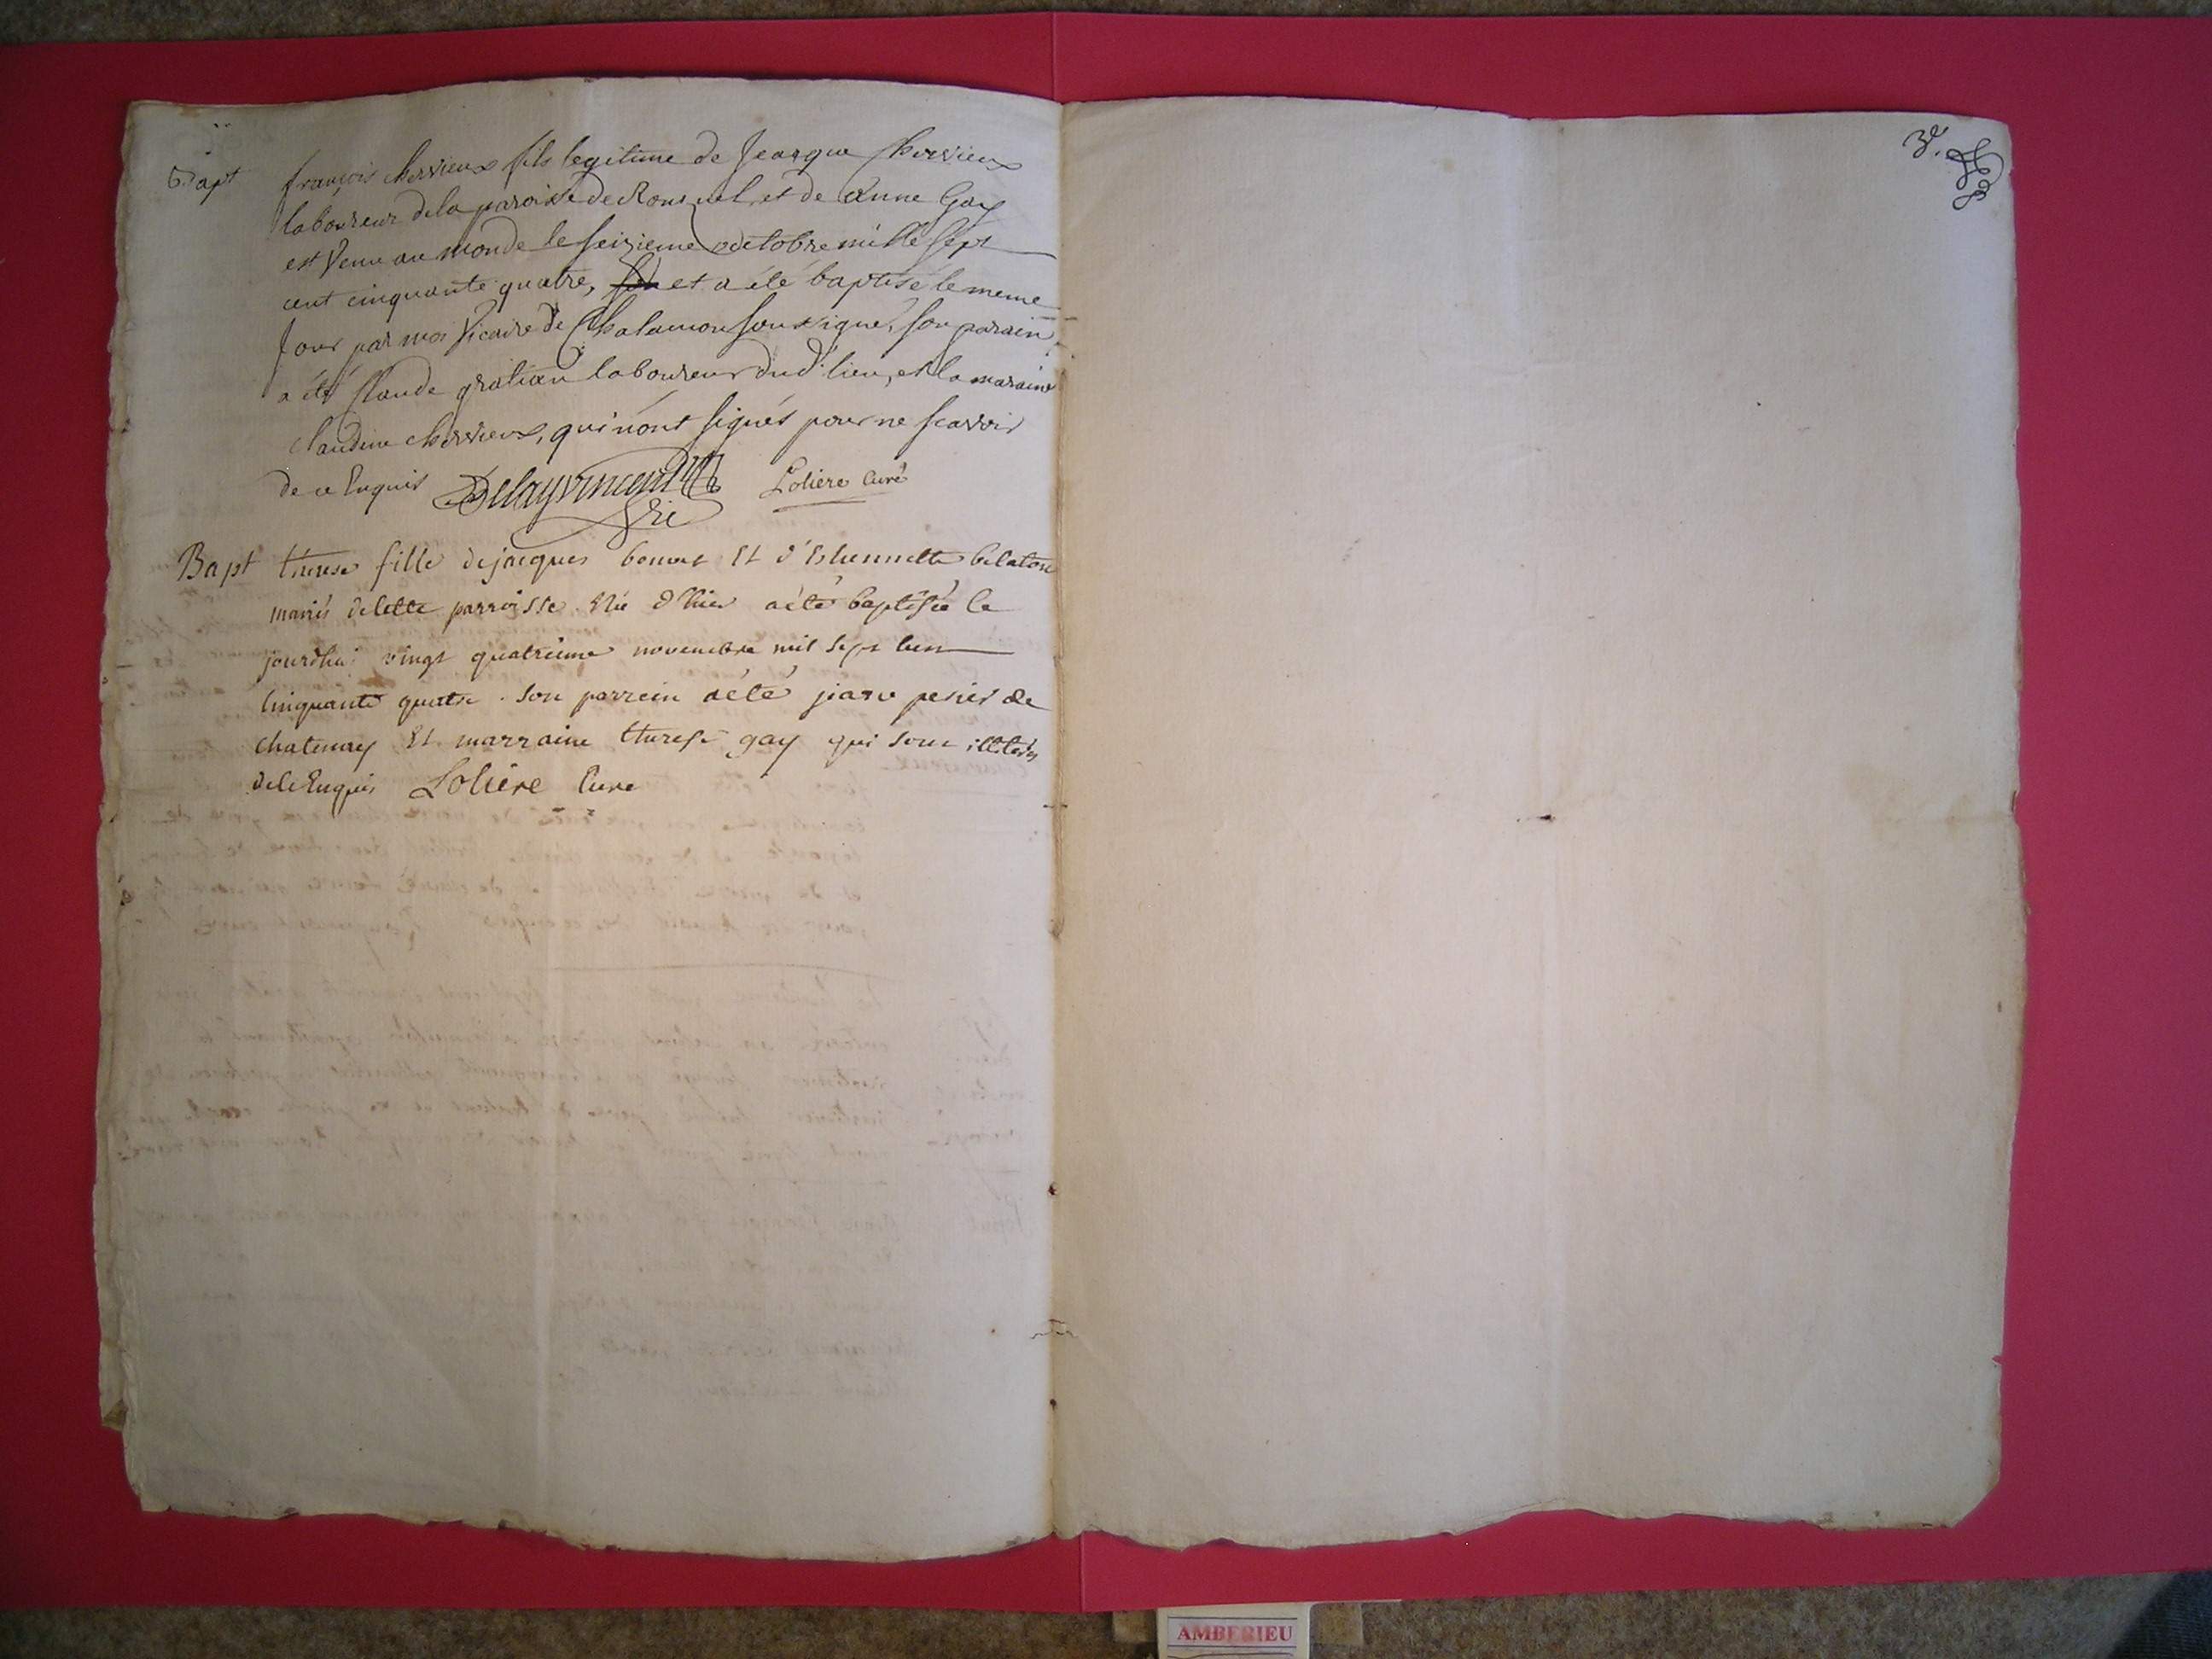 Bapt françois chervieux fils legitime de Jeacque Chervieux
laboureur dela paroisse de Ronsuel, et de Anne Gay
est Venu au monde le seizieme octobre mille sept
cent cinquante quatre, et a été baptisé le meme
Jour par moi Vicaire de Chalamon soussigné, son parain
a été Claude gratian laboureur dud. lieu, et la maraine
claudine chervieux, qui n'ont signés pour ne scavoir
de ce Enquis Delayvincent Lolière Curé
vic
Bapt therese fille de jacques bonnet Et d'Ethiennette belaton
mariés de cette parroisse Née d'hier a été baptisée ce
jourdhui vingt quatrieme novembre mil sept cen
Cinquante quatre . son parrein a été perier de
chatenay Et marraine therese gay qui sont illiterés
de ce Enquis Lolière Curé
3e.
AMBERIEU